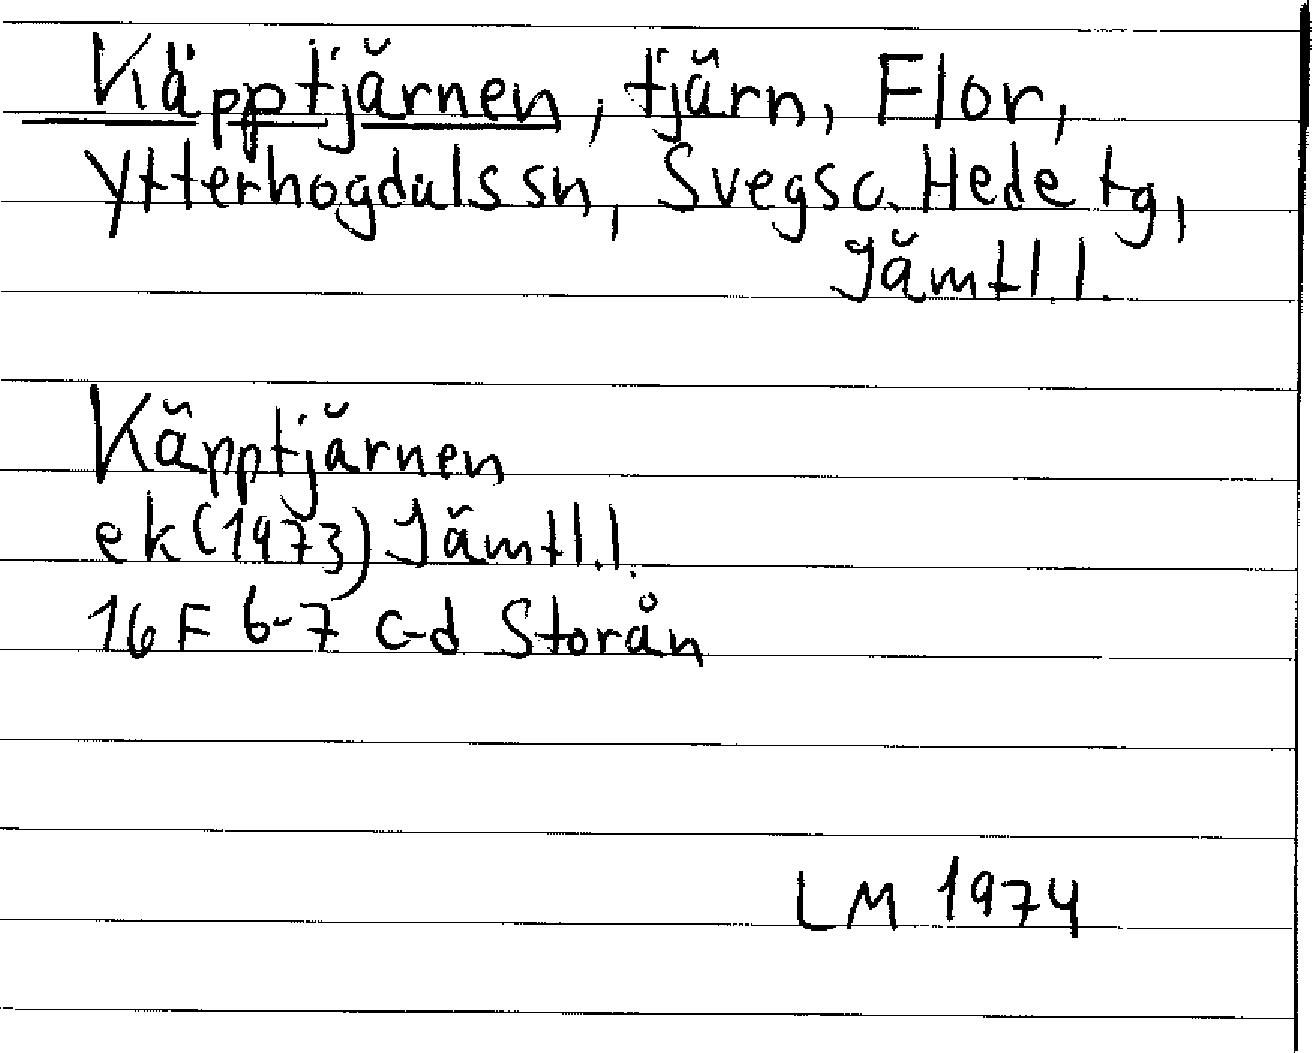 Käpptjärnen, tjärn, Flor,
Ytterhogdals sn, Svegs o. Hede tg,
Jämtl. l.
Käpptjärnen
ek (1973) Jämtl. l.
16 F 6-7 c-d Storån
LM 1974